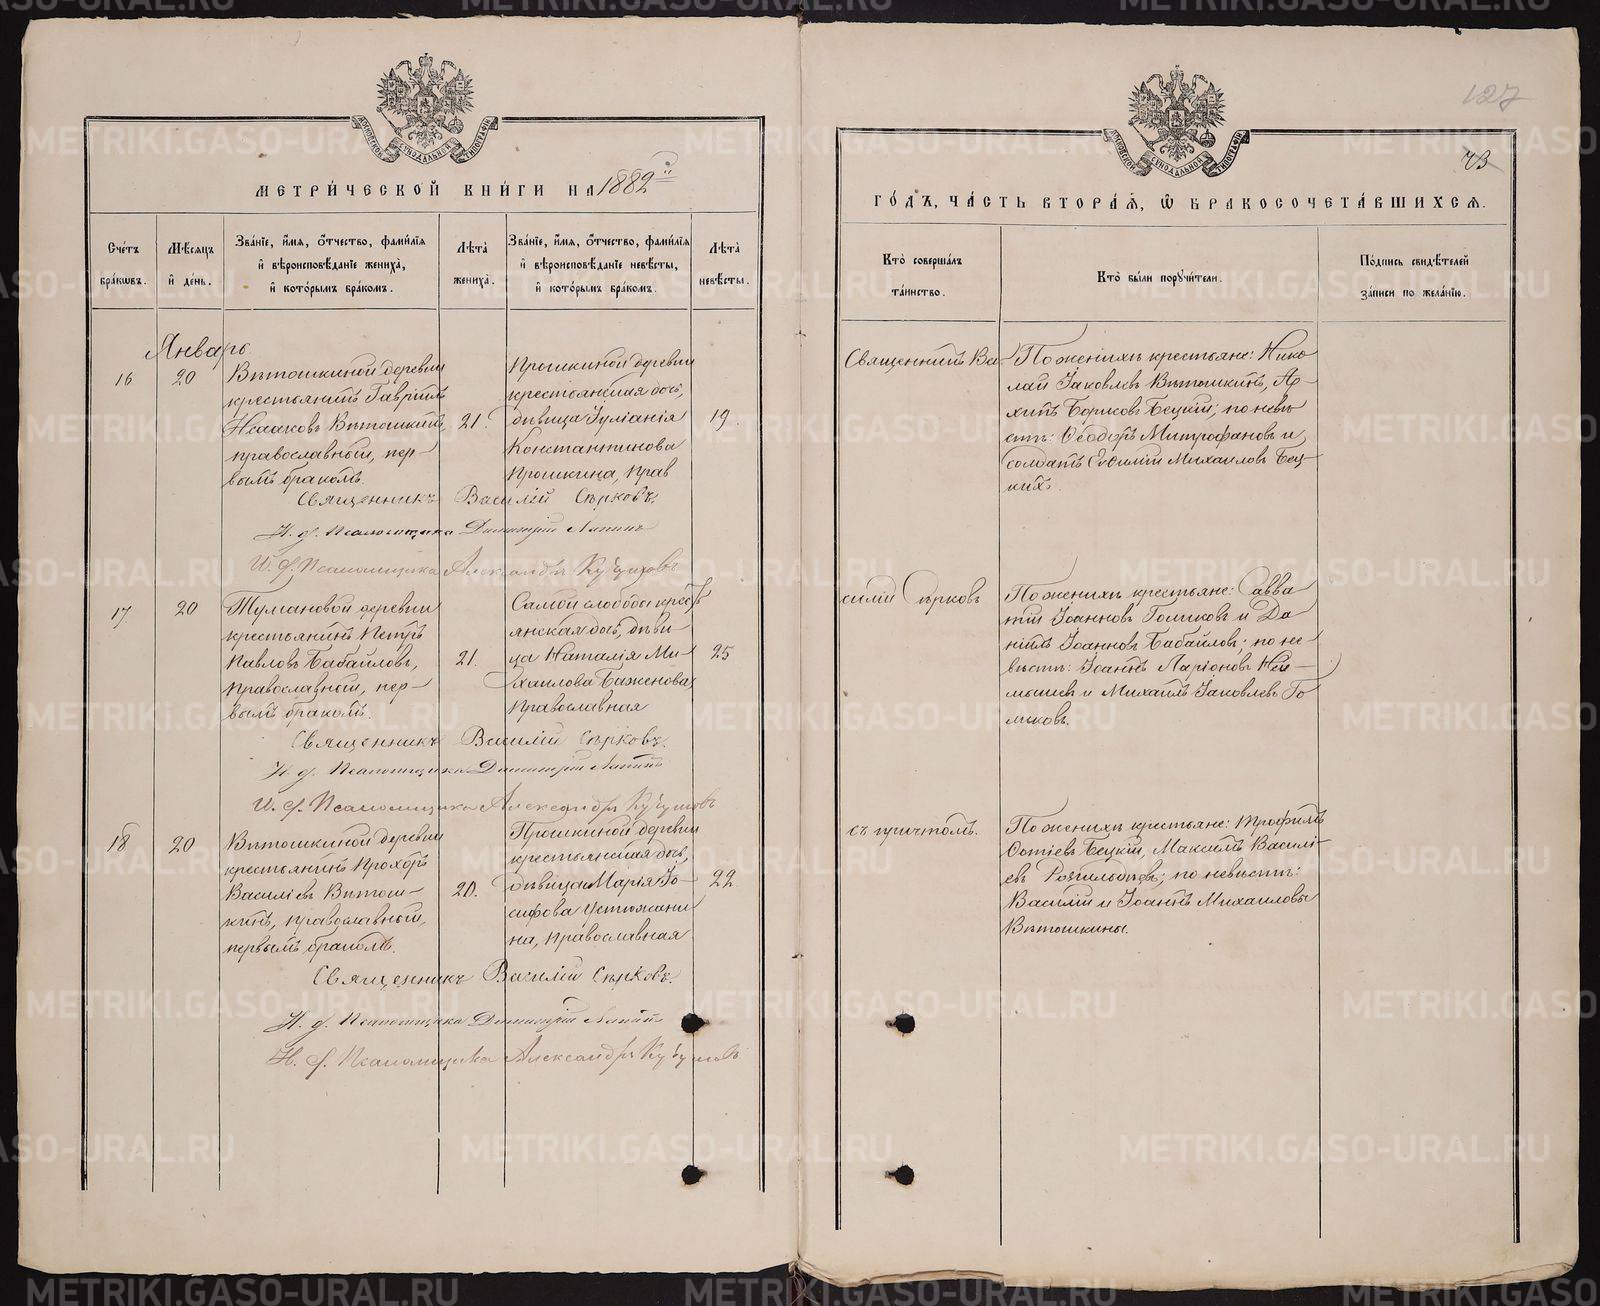 МЕТРИ́ЧЕСКОЙ КНИ́ГИ НА 1882й
Сче́тъ бра́кѡвъ.
Мѣ́сяцъ и҆ де́нь.
Зва́нїе, и҆́мя, ѻ҆́тчество, фами́лїя и҆ вѣроисповѣ́данїе жениха̀, и҆ кото́рымъ бра́комъ.
Лѣ́та жениха̀.
Зва́нїе, и҆́мя, ѻ҆́тчество, фами́лїя и҆ вѣроисповѣ́данїе невѣ́сты, и҆ кото́рымъ бра́комъ.
Лѣ́та невѣ́сты.
Январь
16
20
Вѣтошкиной деревни
крестьянинъ Гавріилъ
Исааковъ Вѣтошкинъ
православный, пер-
вымъ бракомъ.
21.
Прошкиной деревни
крестьянская дочь,
дѣвица Іуліанія
Константинова
Прошкина, прав
19.
Священникъ Василій Сѣрковъ.
И. д. Псаломщика Димитрій Ляпинъ
И. д. Псаломщика Александръ
17
20
Тумановой деревни
крестьянинъ Петръ
Павловъ Бабайловъ,
православный, пер-
вымъ бракомъ.
21.
Самой слободы кресть
янская дочь, дѣви
ца Наталія Ми-
хаилова Баженова,
православная
25
Священникъ Василій Сѣрковъ.
И. д. Псаломщика Димитрій Ляпинъ
И. д. Псаломщика Александръ
18
20
Вѣтошкиной деревни
крестьянинъ Прохоръ
Василіевъ Вѣтош-
кинъ, православный,
первымъ бракомъ.
20.
Прошкиной деревни
крестьянская дочь,
дѣвица Марія Іо-
сифова Устюжани
на, православная
22
Священникъ Василій Сѣрковъ.
И. д. Псаломщика Димитрій Ляпинъ
И. д. Псаломщика Александръ
127
73
ГО́ДЪ, ЧА́СТЬ ВТОРА́Я, Ѡ БРАКОСОЧЕТА́ВШИХСЯ.
Кто̀ соверша́лъ та́инство.
Кто̀ бы́ли поручи́тели.
По́дпись свидѣ́телей за́писи по жела́нїю.
Священникъ Ва
По женихѣ крестьяне: Нико
лай Іаковлевъ Вѣтошкинъ, Ар
хипъ Борисовъ Бецкій; по невѣ
стѣ: Ѳеодоръ Митрофановъ и
солдатъ Евсилій Михаиловъ Бец-
кихъ.
силій Сѣрковъ
По женихѣ крестьяне: Савва
тій Іоанновъ Голиковъ и Да
ніилъ Іоанновъ Бабайловъ; по не
вѣстѣ: Іоаннъ Ларіоновъ Ней-
мышевъ и Михаилъ Іаковлевъ Го
ликовъ.
съ причтомъ.
По женихѣ крестьяне: Трофимъ
Сотіевъ Бецкій, Максимъ Василі-
евъ; по невѣстѣ:
Василій и Іоаннъ Михаиловы
Вѣтошкины.
METRIKI.GASO-URAL.RU